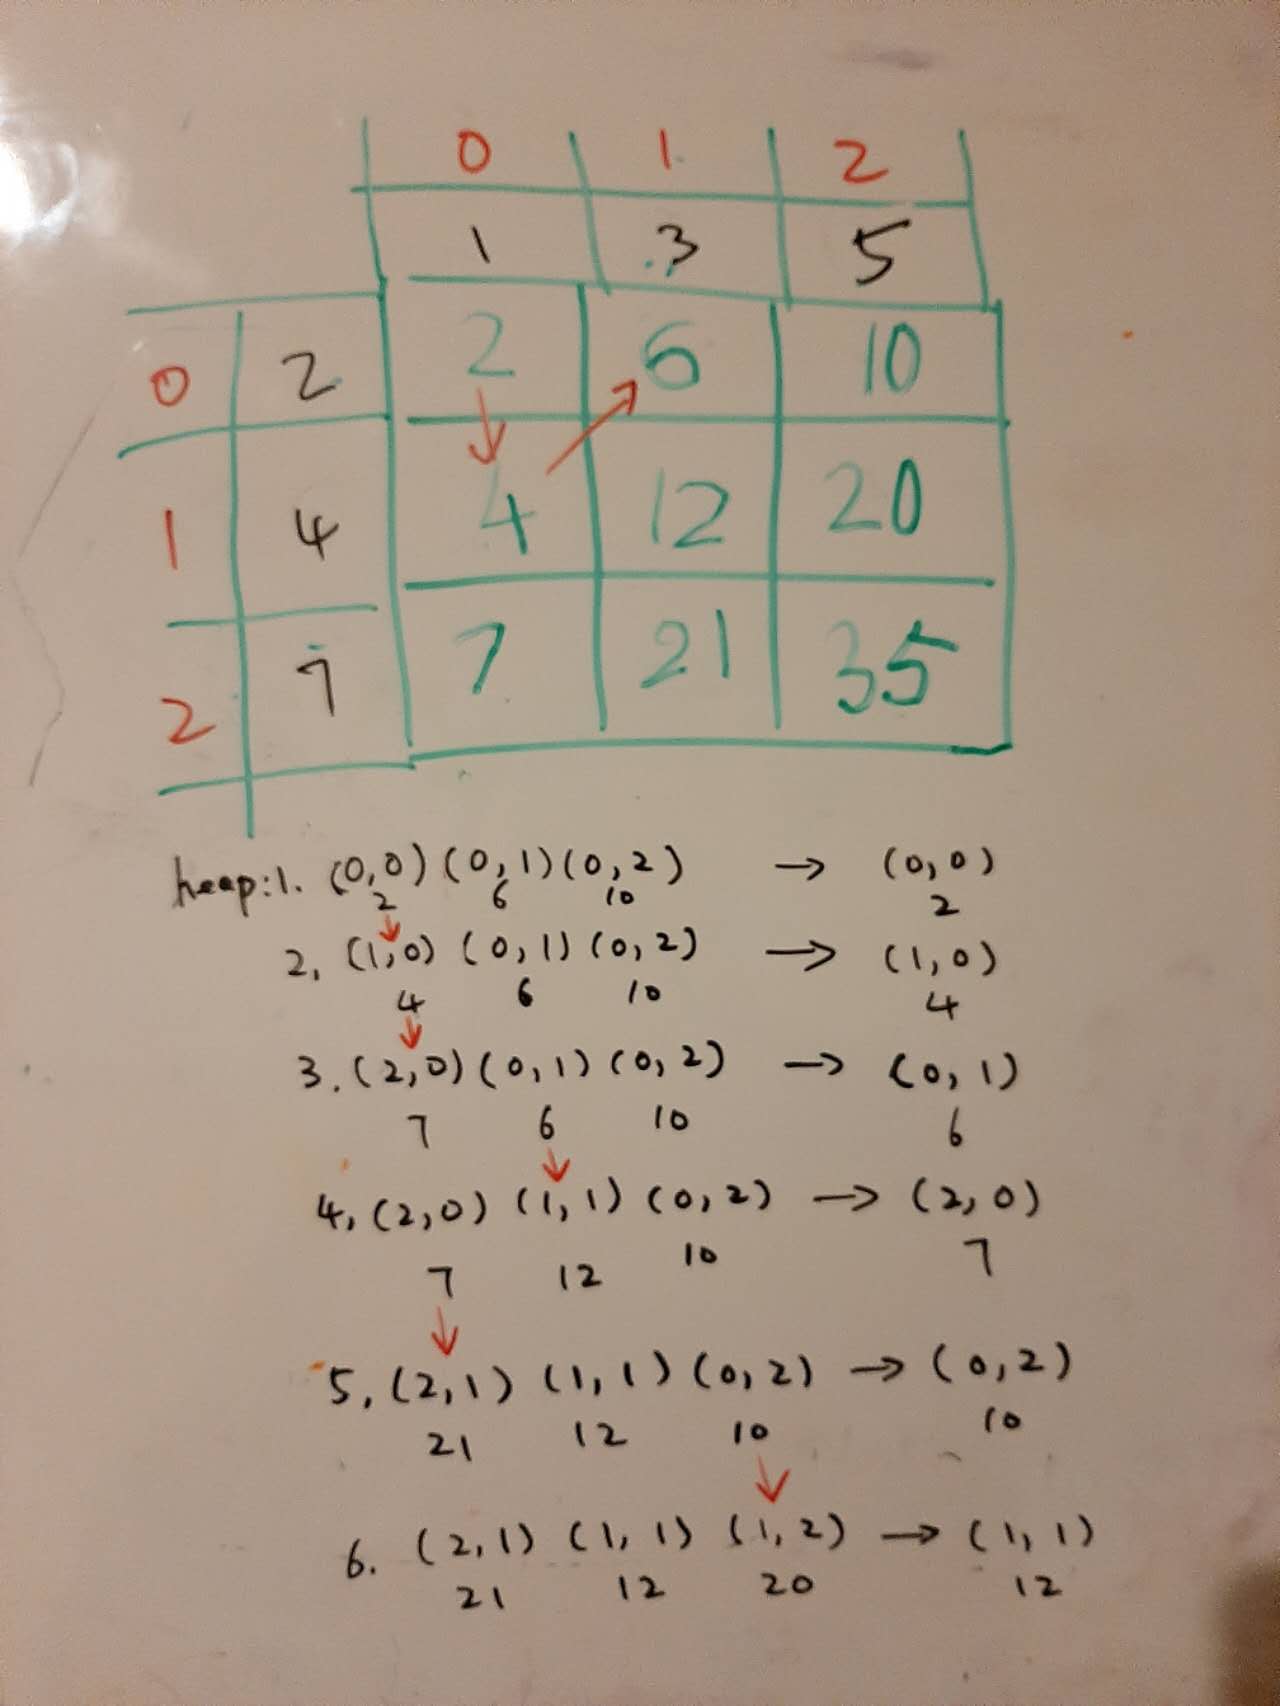 0 1 2
1 3 5
0 2 2 6 10
1 4 4 12 20
2 7 7 21 35
heap:1. (0,0) (0,1) (0,2) → (0,0)
2 6 10 2
2, (1,0) (0,1) (0,2) → (1,0)
4 6 10 4
3. (2,0) (0,1) (0,2) → (0,1)
7 6 10 6
4, (2,0) (1,1) (0,2) → (2,0)
7 12 10 7
5, (2,1) (1,1) (0,2) → (0,2)
21 12 10 10
6. (2,1) (1,1) (1,2) → (1,1)
21 12 20 12